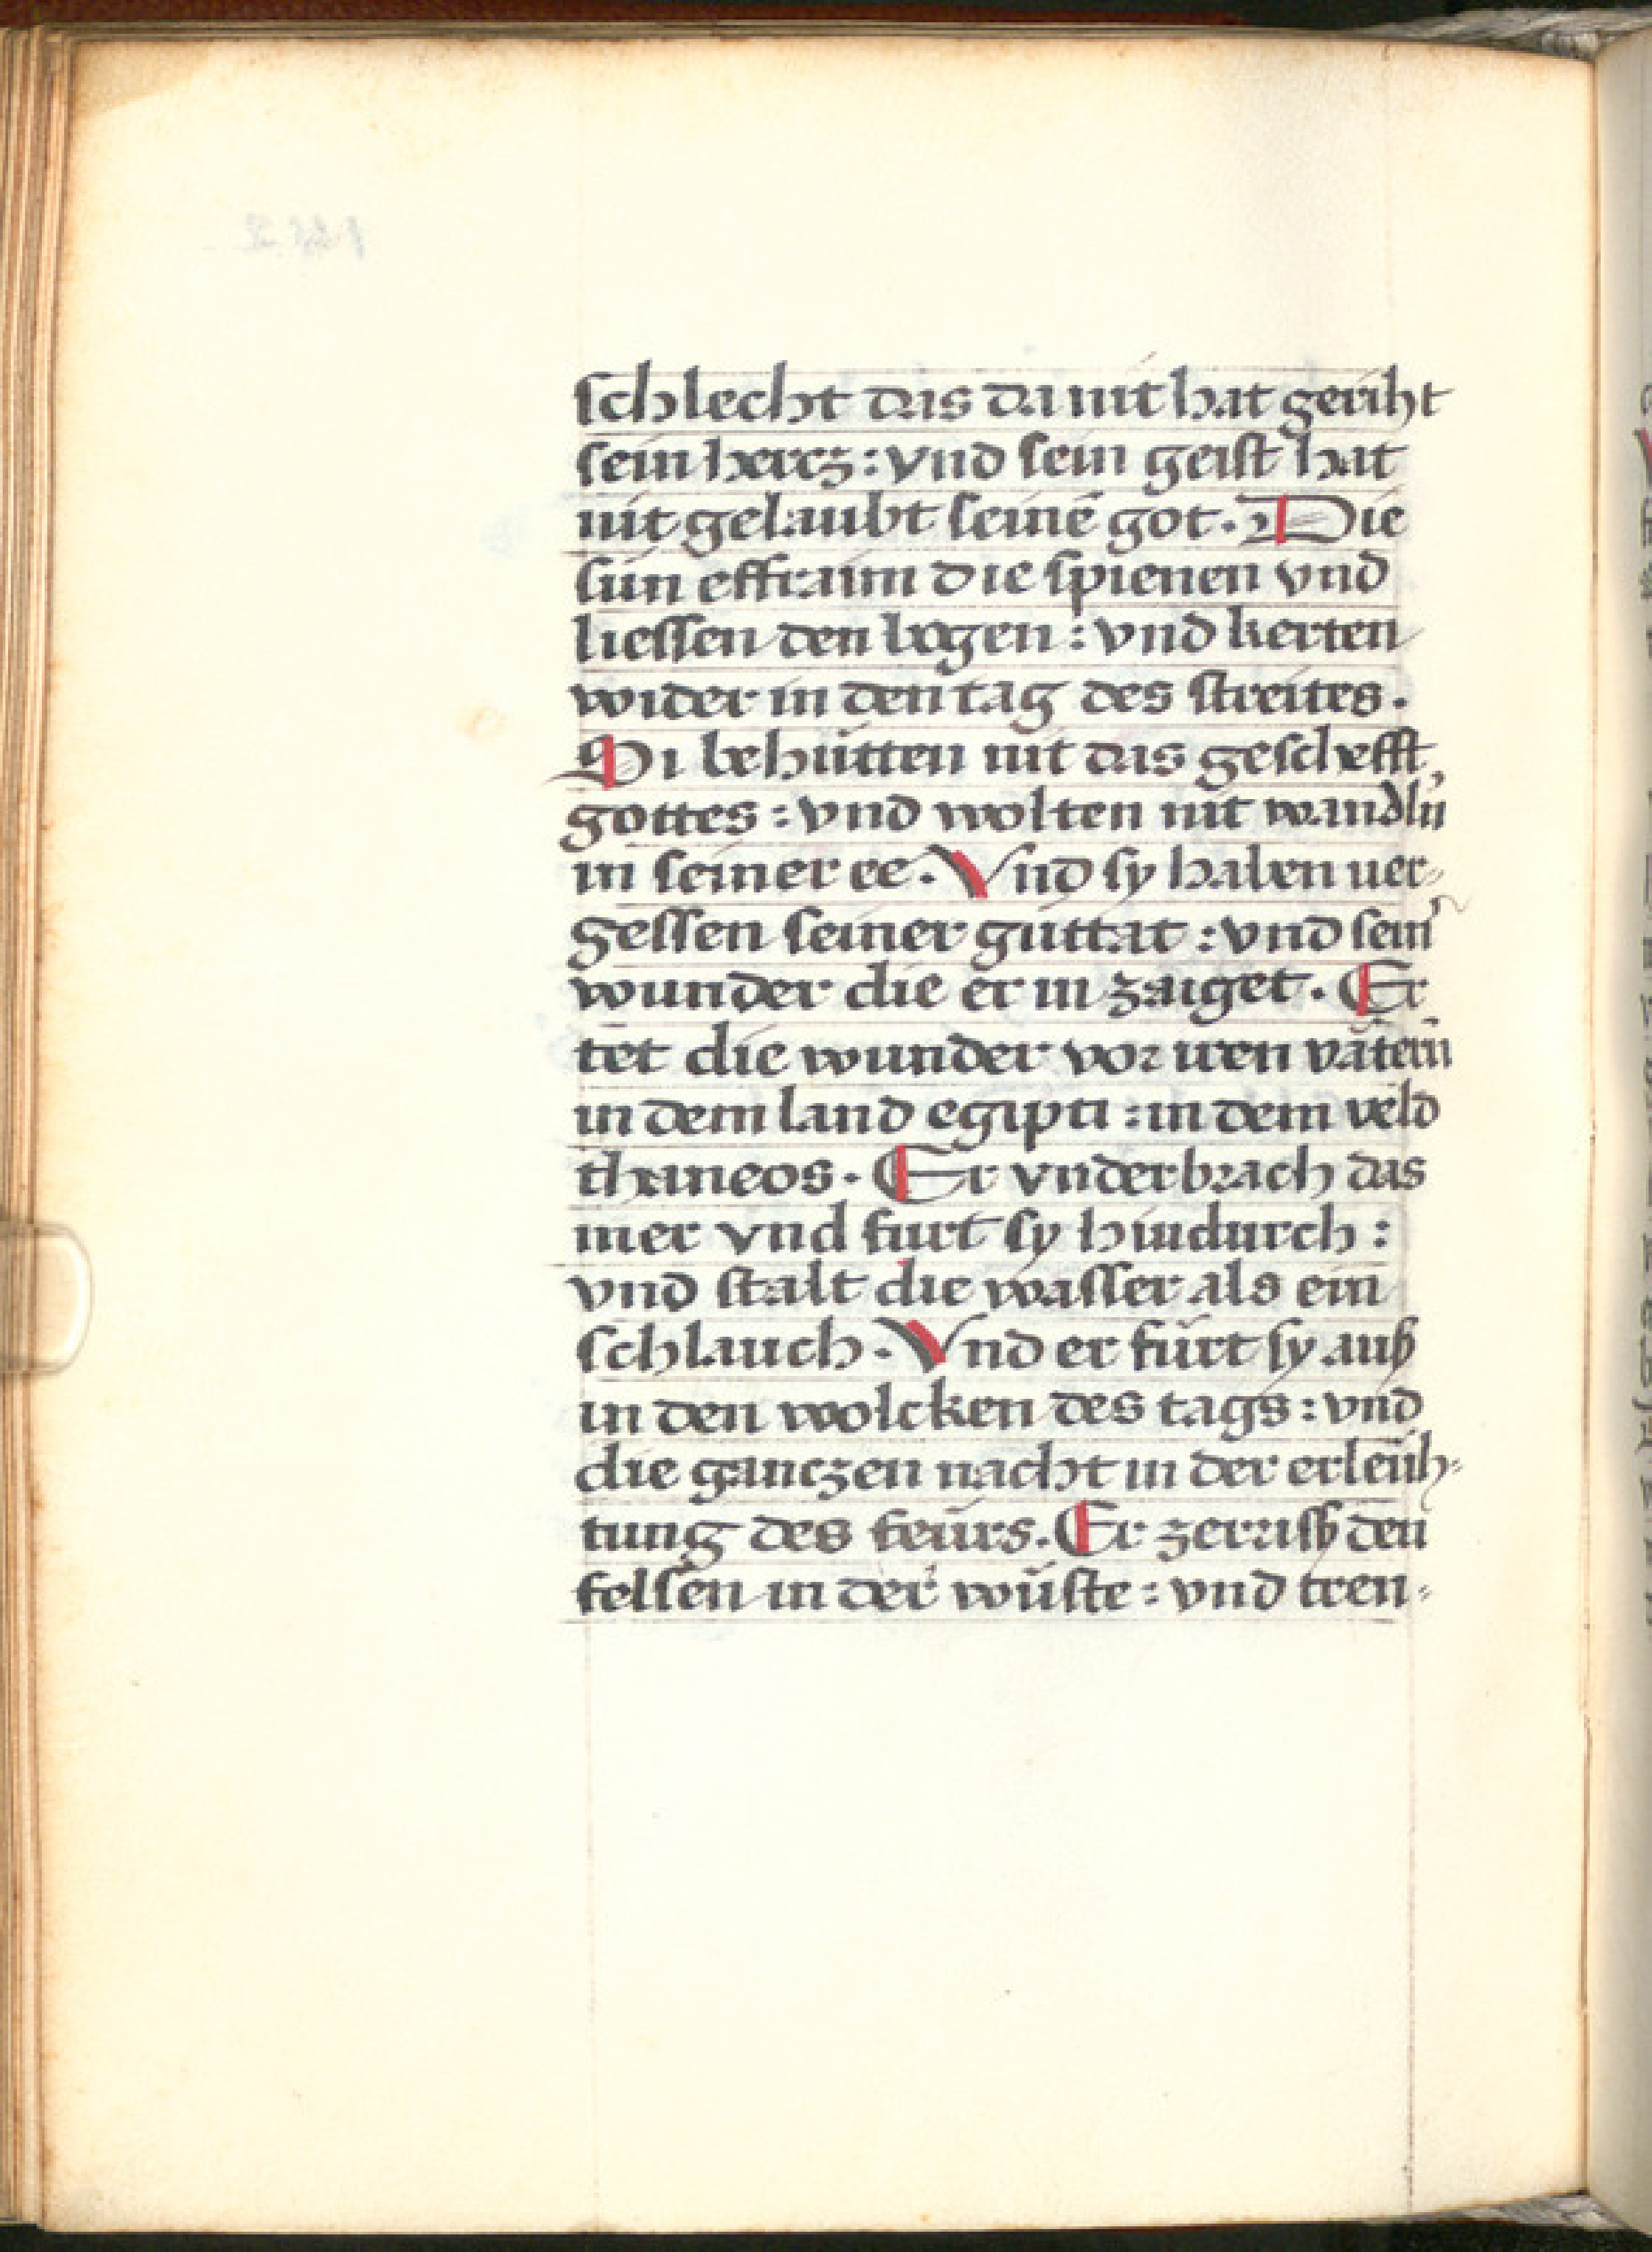 schlecht das da nit hat geriht
sein hercz : vnd sein geist hat
nit gelaubt seinē got . Die
sún effraim die spienen vnd
liessen den bogen : vnd kerten
wider in den tag des streites .
Si behütten nit das geschefft
gottes : vnd wolten nit wandlñ
in seiner ee . Vnd sy haben uer-
gessen seiner guttat : vnd sein̾
wunder die er in zaiget . Er
tet die wunder vor iren vätern
in dem land egipti : in dem veld
thaneos . Er vnderbrach das
mer vnd furt sy hindurch :
vnd stalt die wasser als ein
schlauch . Vnd er fürt sy auß
in den wolcken des tags : vnd
die ganczen nacht in der erleüh-
tung des feürs . Er zerriß den
felsen in der wüste : vnd tren-